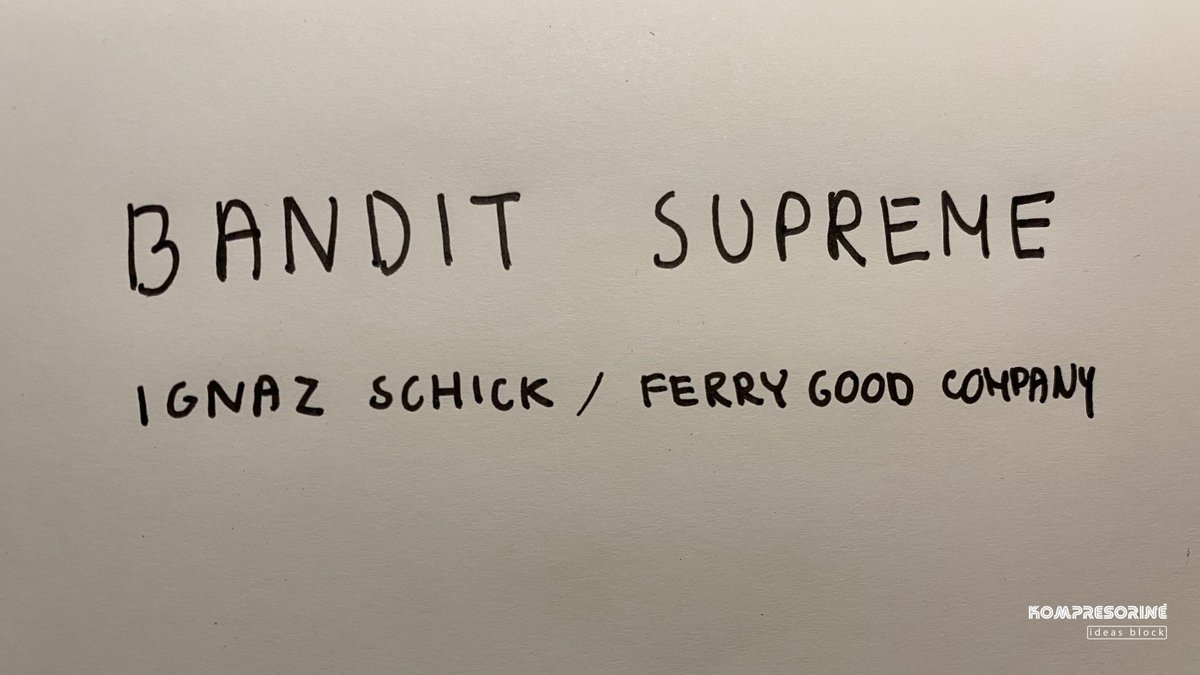 BANDIT SUPREME
IGNAZ SCHICK / FERRY GOOD COMPANY
KOMPRESORINĖ
ideas block